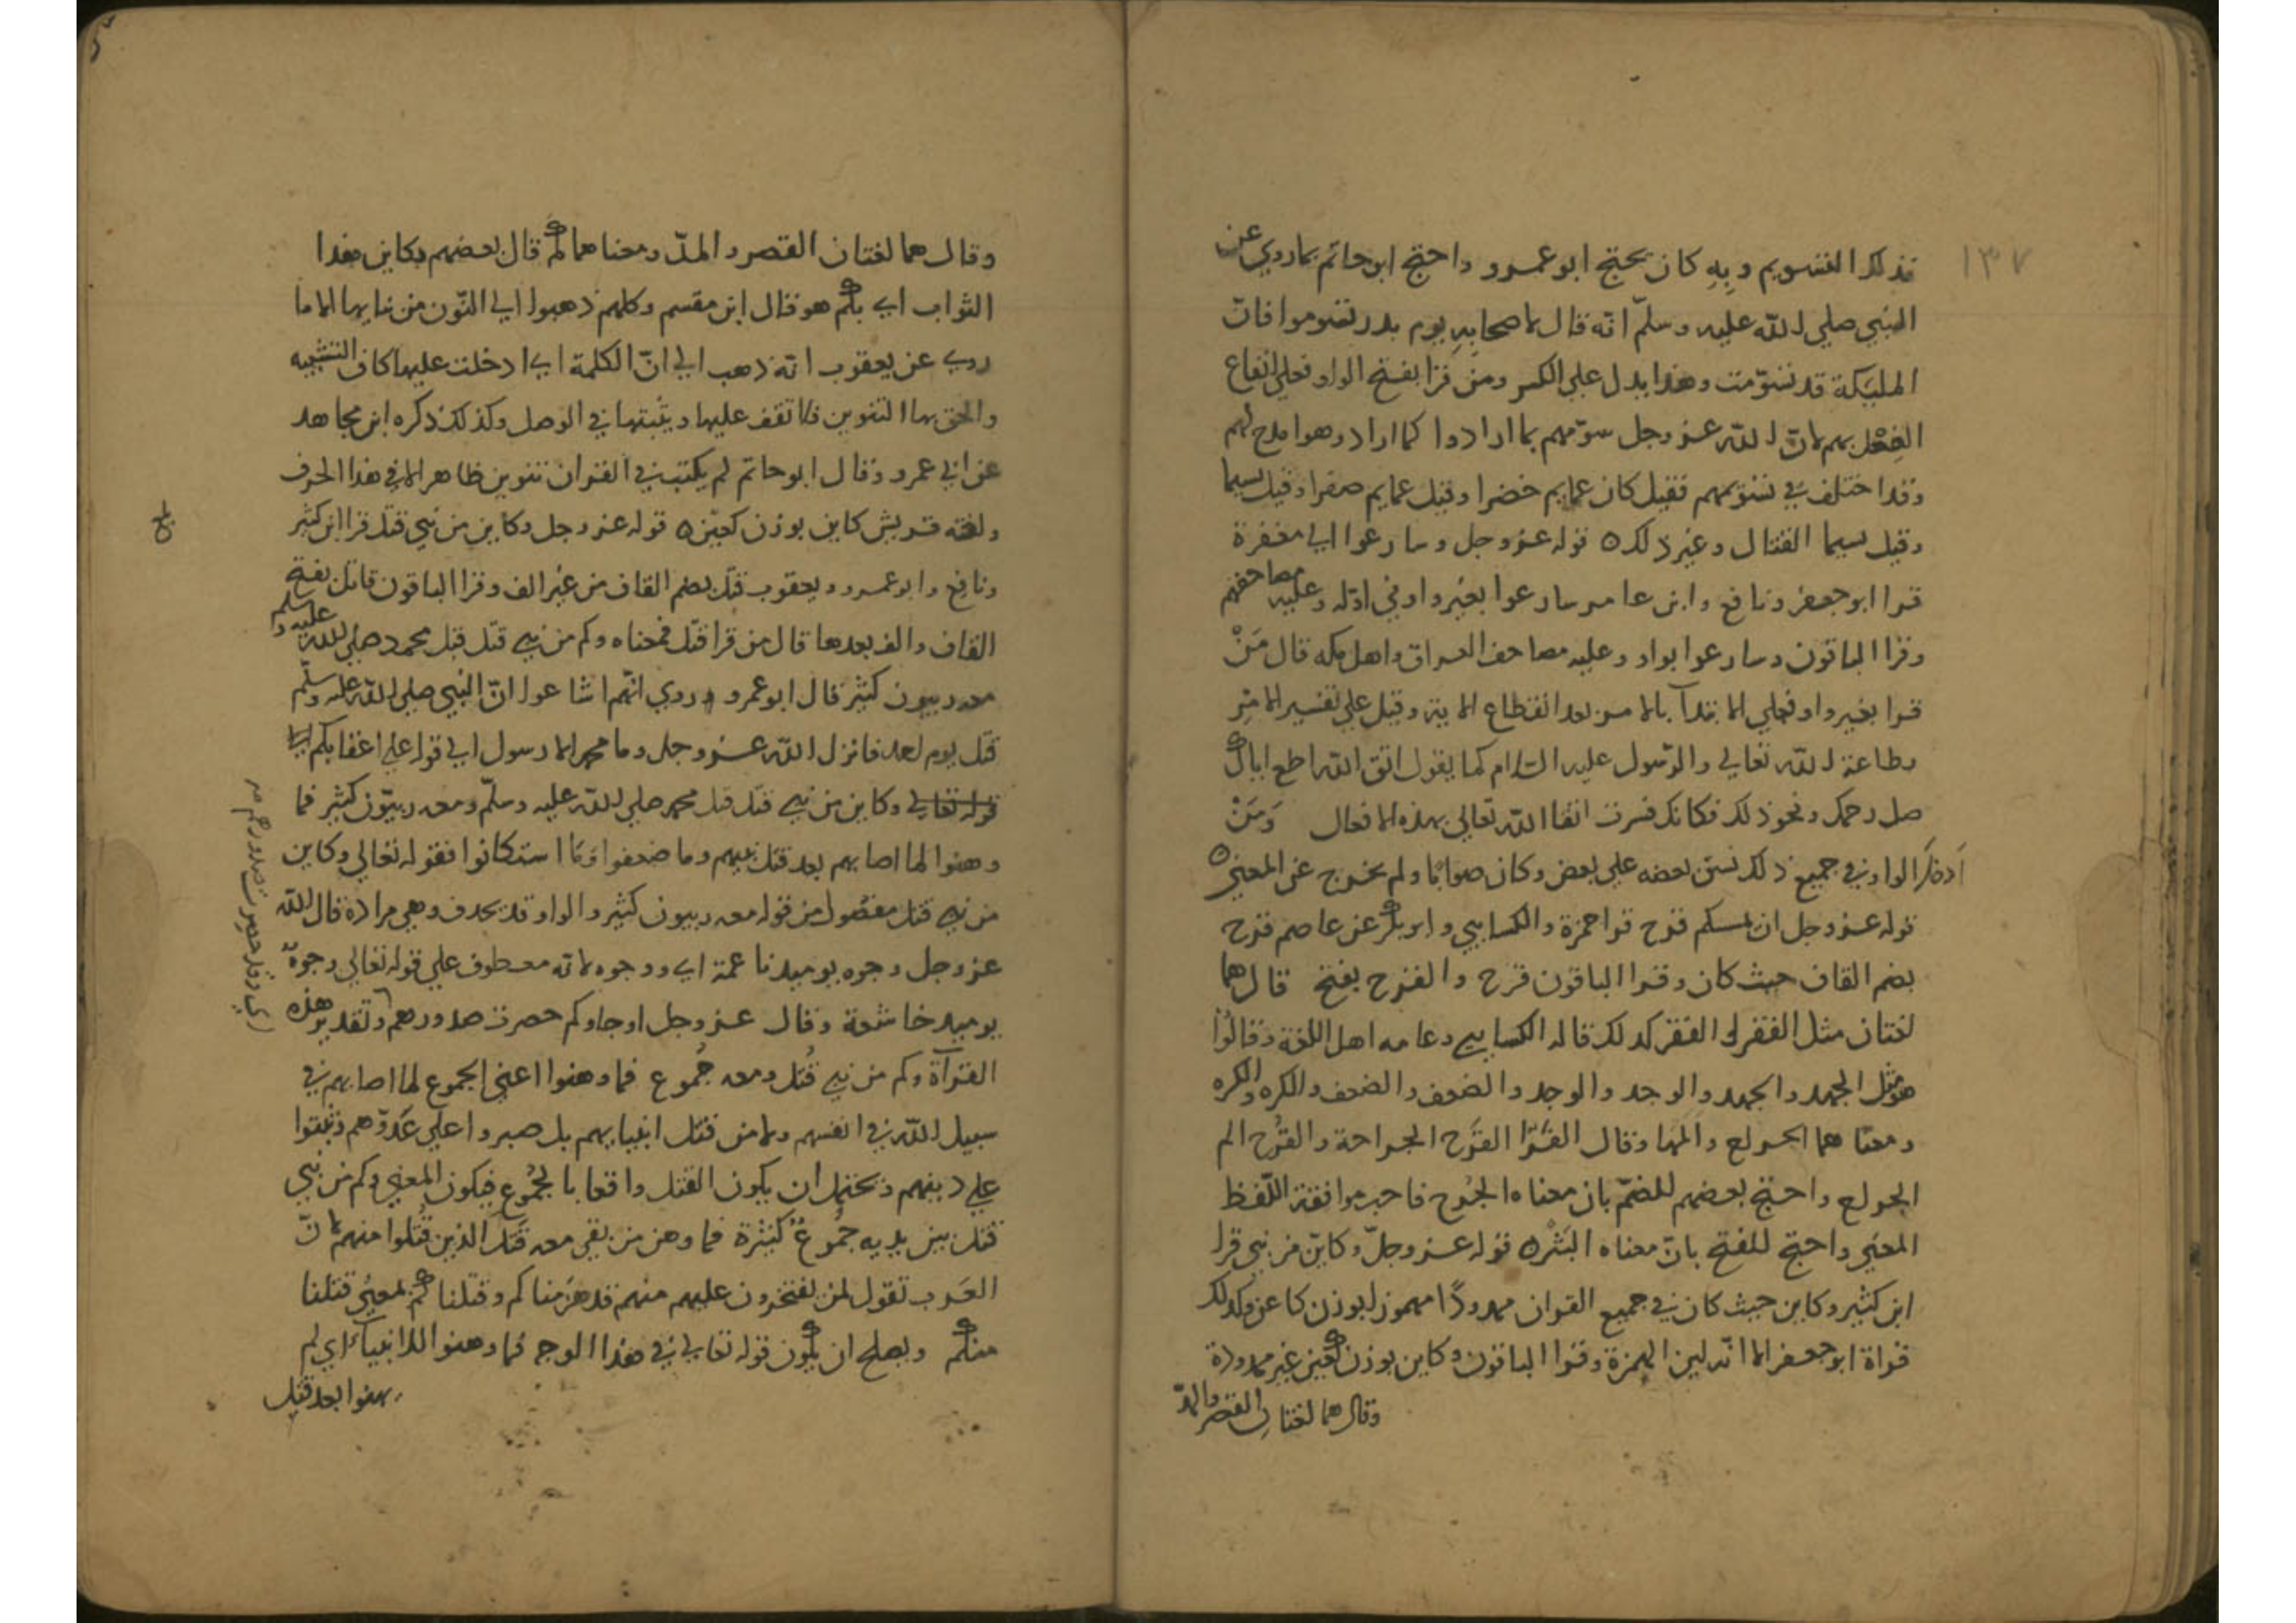 ١٣٧
فذلك التسويم وبه كان يحتج ابو عمرو واحتج ابو حاتم بما روي عن
النبي صلي الله عليه وسلّم انّه قال لاصحابِهِ يوم بدر تسوموا فانّ
المليكة قد تسوّمت وهذا يدل علي الكسر ومن قرا بفتح الواو فعلي ايقاع
الفِعْل بهم لانّ الله عز وجل سوّمهم بما ارادوا كما اراد وهو امدح لهم
وقد اختلف في تسويمهم فقيل كان عمايم خضرا وقيل عمايم صفرا وقيل سيما
وقيل سيما القتال وغير ذلك ه قوله عز وجل وسارعوا الي مغفرة
قرا ابو جعفر ونافع وابن عامر سارعوا بغير واو في اوّله وعليه مصاحفهم
وقرا الباقون وسارعوا بواو وعليه مصاحف العراق واهل مكه قال مَنْ
قرا بغير واو فعلي الابتدآ بالامر بعد انقطاع الاية وقيل علي تفسير الامر
وطاعة الله تعالي والرّسول عليه السّلام كما يقول اتق الله اطع اباك
صل رحمك ونحو ذلك فكانك فسرت اتقا الله تعالي بهذه الافعال وَمَنْ
ادخل الواو في جميع ذلك نسق بعضه علي بعض وكان صوابًا ولم يخرج عن المعني ه
قوله عز وجل ان يمسسكم قرح قرا حمزة والكسايي وابو بكر عن عاصم قرح
بضم القاف حيث كان وقرا الباقون قرح والقرح بفتح قال هما
لغتان مثل الفقر والفقر كذلك قاله الكسايي وعامه اهل اللغة وقالوا
هو مثل الجهد والجهد والوجد والوجد والضعف والضعف والكره والكره
ومعنا هما الجراح والمها وقال الفَرّا القَرح الجراحة والقُرح الم
الجراح واحتج بعضهم للضمّ بان معناه الجُرح فاحب موافقة اللّفظ
المعني واحتج للفتح بانّ معناه البَثْر ه قوله عز وجلّ وكايّن من نبي قرا
ابن كثير وكاين حيث كان في جميع القران ممدودًا مهموز ابوزن كاعن وكذلك
قراة ابو جعفر الا انّه لين الهمزة وقرا الباقون وكاين بوزن كعين غير ممدودة
وقال هما لغتان القصر والمدّ
وقال هما لغتان القصر والمدّ ومعناهما كم قال بعضهم وكاين بهذا
الثواب اي بكم هو فقال ابن مقسم وكلهم ذهبوا الي النّون من بنايها الا ما
روي عن يعقوب انّه ذهب الي انّ الكلمة اي ادخلت عليها كاف التشبيه
والحق بها التنوين فلا تقف عليها ويثبتها في الوصل وكذلك ذكره ابن مجاهد
عن ابي عمرو وقال ابو حاتم لم يكتب في القران تنوين ظاهر الا في هذا الحرف
ولغة قريش كاين بوزن كعين ه قوله عز وجل وكاين من نبي قتل قرا ابن كثير
ونافع وابو عمرو ويعقوب قتل بضم القاف من غير الف وقرا الباقون قاتل بفتح
القاف والف بعدها قال من قرا قتل فمعناه وكم من نبي قتل قبل محمد صلي الله عليه وسلم
معه ربيون كثير قال ابو عمرو وروي انّهم اشاعوا انّ النبي صلي الله عليه وسلّم
قتل يوم احد فانزل الله عز وجل وما محمد الا رسول الي قوله علي اعقابكم
قوله تعالي وكاين من نبي قتل قبل محمد صلي الله عليه وسلّم ومعه ربيّون كثير فما
وهنوا لما اصابهم بعد قتل نبيهم وما ضعفوا وما استكانوا فقوله تعالي وكاين
من نبي قتل مفصُول من قوله معه ربيون كثير والواو قد يحذف وهي مرادة قال الله
عز وجل وجوه يوميذ ناعمة اي ووجوه لانّه معطوف علي قوله تعالي وجوهٌ
يوميذ خاشعة وقال عز وجل او جاوكم حصرت صدورهم وتقدير هذه
القرآة وكم من نبي قُتل ومعه جُموع فما وهنوا اعني الجموع لما اصابهم في
سبيل الله في انفسهم ولا من قتل انبيايهم بل صبروا علي عَدوّهم وثبتوا
علي دينهم ويحتمل ان يكون القتل واقعا بالجُمُوع فيكون المعني وكم من نبي
قتل بين يديه جُمُوعٌ كثيرة فما وهن من بقي معه قَتل الذين قُتلوا منهم لانّ
العَرب تقول لمن يفتخرون عليهم منهم قد هزمناكم وقتلناكم بمعني قتلنا
منكم ويصلح ان يكون قوله تعالي في هذا الوجه فما وهنوا الانبيآ اي لم
يهنوا بعد قتل
اي وقد حصرت صدورهم صح